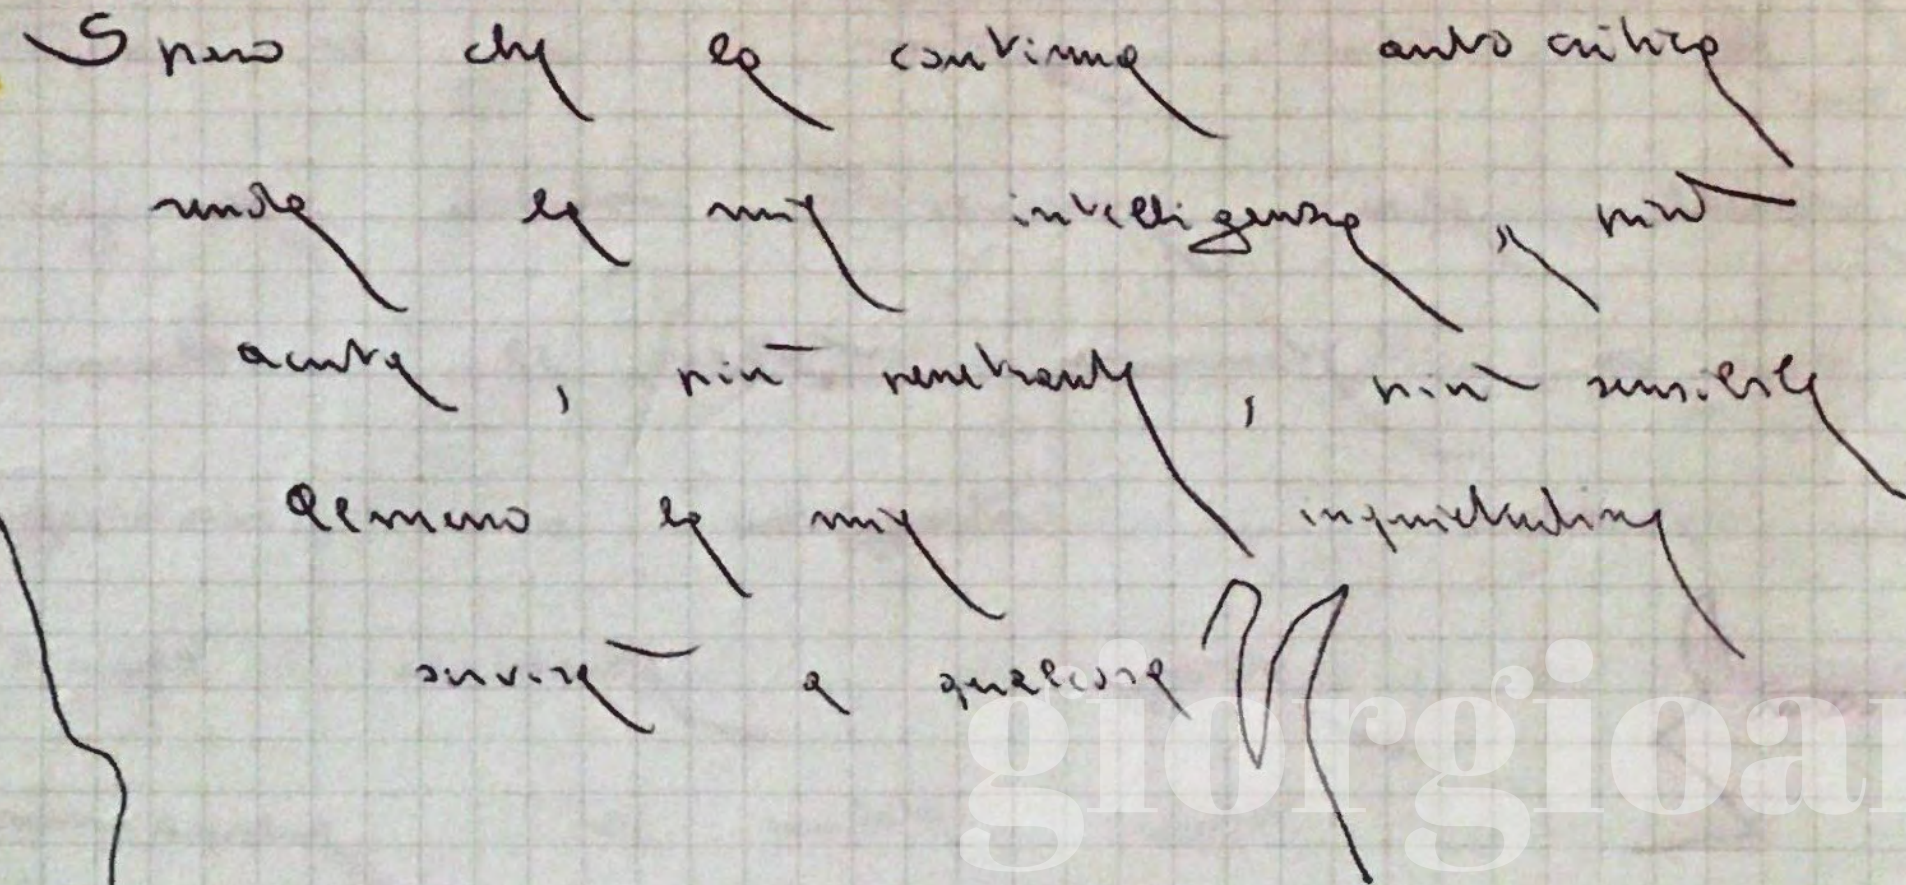 Spero che la continua autocritica
renda la mia intelligenza, più
acuta, più penetrante, più sensibile
Almeno la mia inquietudine
servirà a qualcosa
giorgioar